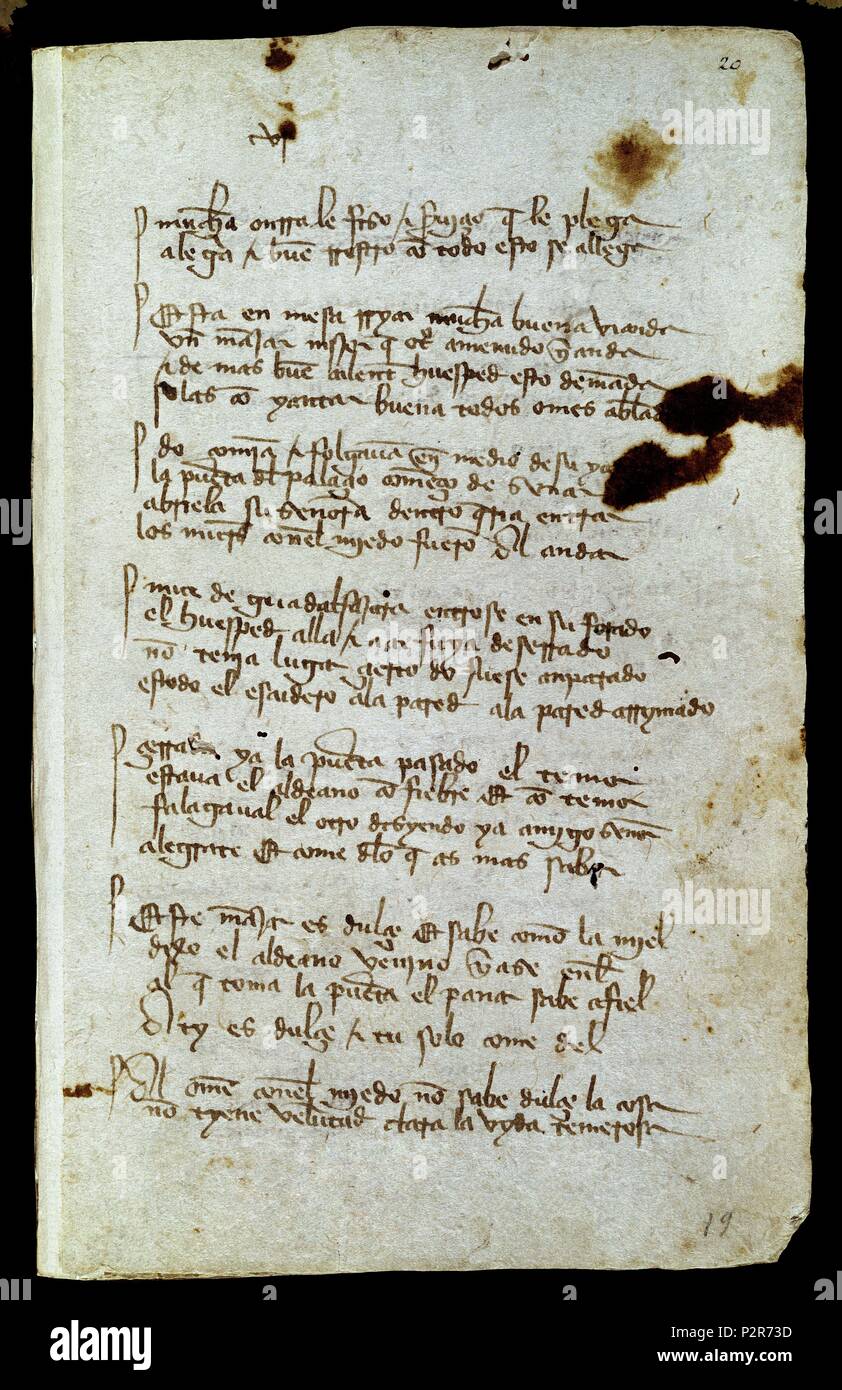 20
cvj
mucha onrra le fiso / e seruiçio q̃ le plega
alegria / e buẽ rrostro cõ todo esto se allega
Esta en mesa rrica mucha buena vianda
vn mãjar mejor q̃ ot° amenudo y anda
/ e de mas buẽ talent huesped esto demãda
solas cõ yantar buena todos omes ablãda
do comiã / e folgauã en medio de su ya
la puẽta dl palaçio començo de sonar
abriela su señora dentro q̃ria entrar
los mures conel miedo fuerõ al andar
mur de guadalfajara entrose en su forado
el huesped alla / e aca fuya deserrado
nõ tenia lugar çerto do fuese anparado
estudo el escuidero ala pared ala pared arrymado
çerrada ya la puẽta pasado el temor
estaua el aldeano cõ fiebre Et cõ temor
falagaual el otro desyendo ya amigo señor
alegrate Et come dlo q̃ as mas sabor
Este mãjar es dulçe Et sabe como la miel
dixo el aldeano venino yase enl
al q̃ toma la puẽta el panar sabe a fiel
A ty es dulçe / e tu solo come del
Al ome conel miedo nõ sabe dulçe la cosa
nõ tyene velũtad clara la vyda temerosa
19
alamy
alamy
2P2R73D
www.alamy.com